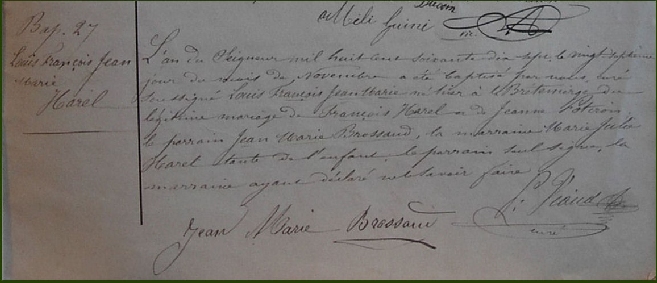 Méli Guiné
vic.
Bap. 27
Louis François Jean
Marie
Harel
L'an du Seigneur mil huit cent soixante dix sept, le vingt septième
jour du mois de Novembre a été baptisé par nous, curé
soussigné Louis François Jean Marie né hier à du
légitime mariage de François Harel et de Jeanne Poterois
le parrain Jean Marie Brossaud, la marraine Marie Julie
Harel tante de l'enfant le parrain seul signe, la
marraine ayant déclaré ne le savoir faire
Jean Marie Brossaud
curé